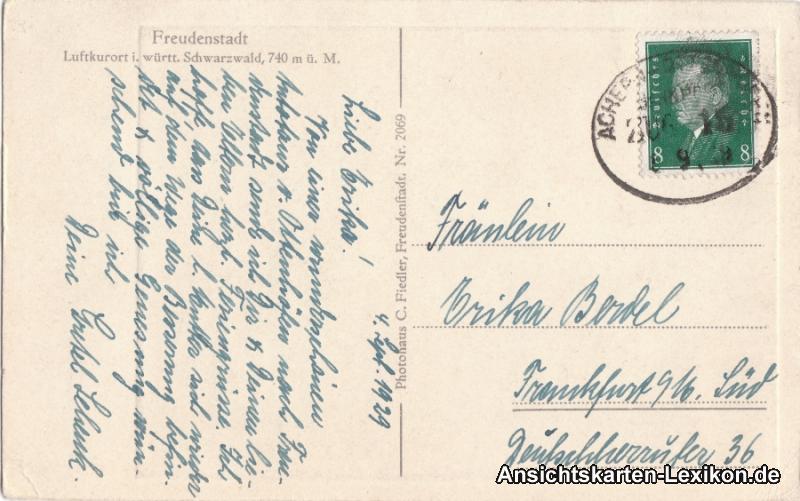 Freudenstadt
Luftkurort i. württ. Schwarzwald, 740 m ü. M.
4. Sept. 1929
Liebe Erika!
Von einer wunderschönen
Autotour v. Ottenhöfen nach Freu-
denstadt send ich Dir & Deinen lie-
ben Eltern herzl. Feriengrüsse. Ich
hoffe, dass Deine l. Mutter sich wieder
auf dem Wege der Besserung befin-
det & völlige Genesung wün-
schend bin ich
Deine
Photohaus C. Fiedler, Freudenstadt. Nr. 2069
Deutsches Reich
8 8
ACHERN
ZUG
Fräulein
Erika Berdel
Frankfurt a/M. Süd
Deutschherrnufer 36
Ansichtskarten-Lexikon.de